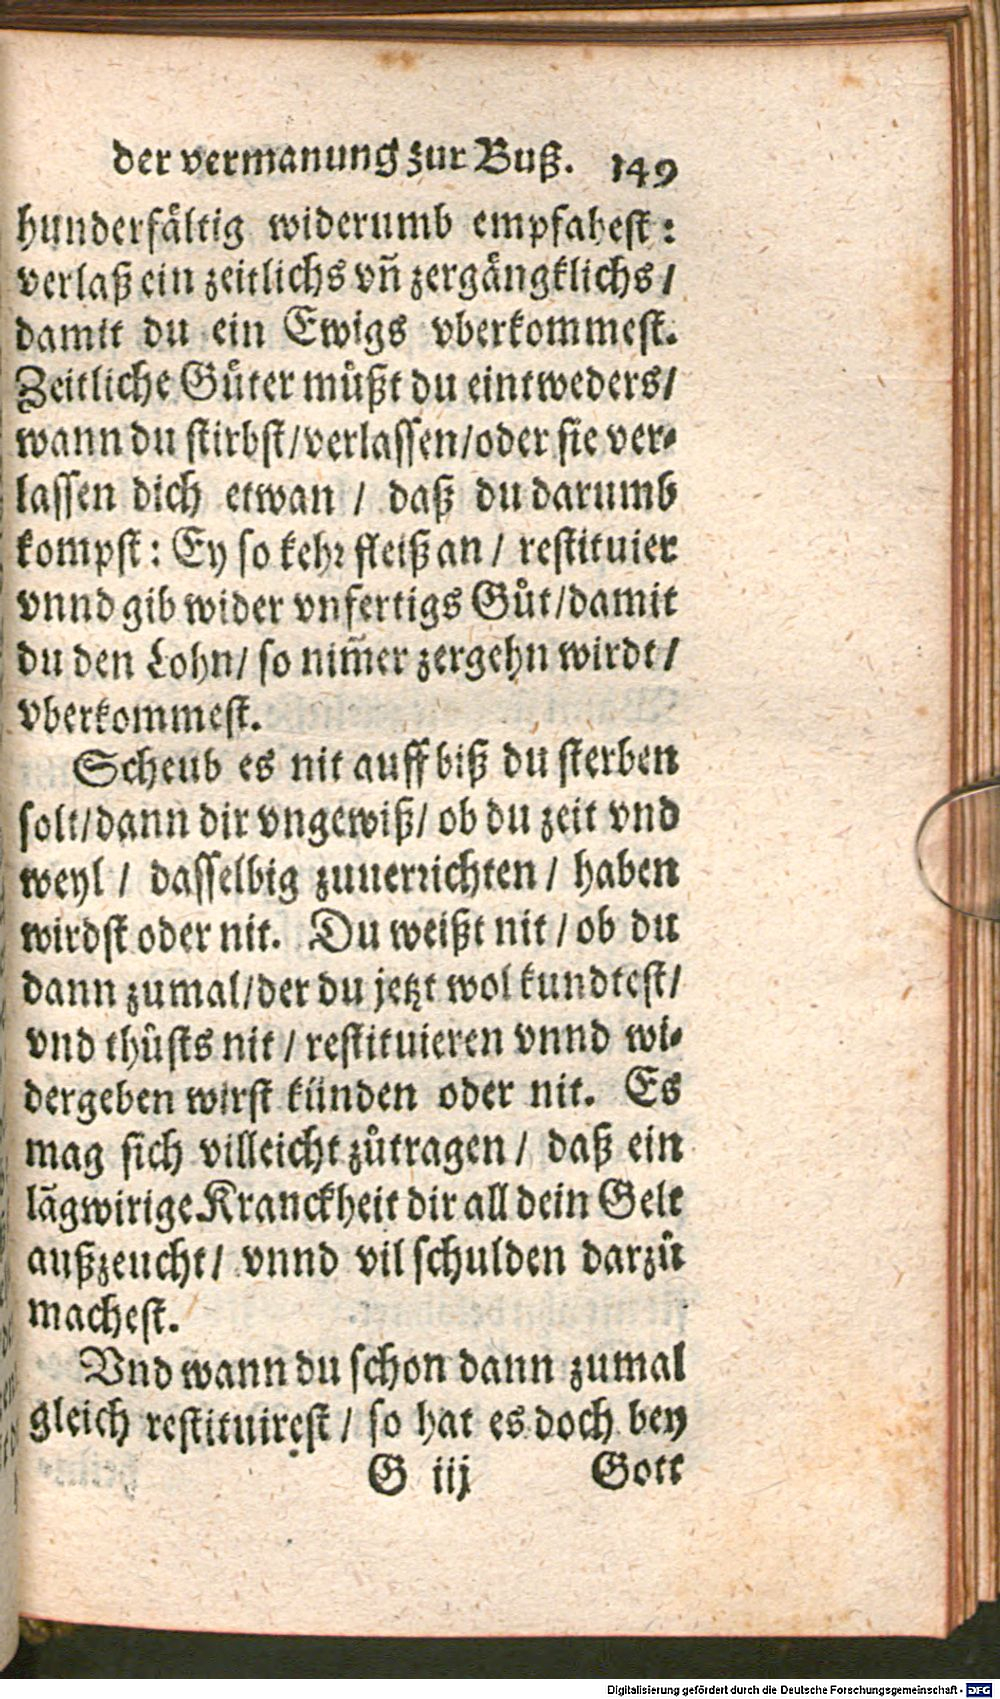 der vermanung zur Buß. 149
hunderfåltig widerumb empfahest:
verlaß ein zeitlichs vñ zergångklichs/
damit du ein Ewigs vberkommest.
Zeitliche Gůter můßt du eintweders/
wann du stirbst/verlassen/oder sie ver-
lassen dich etwan / daß du darumb
kompst: Ey so kehr fleiß an / restituier
vnnd gib wider vnfertigs Gůt/damit
du den Lohn/ so nim̃er zergehn wirdt/
vberkommest.
Scheub es nit auff biß du sterben
solt/dann dir vngewiß/ ob du zeit vnd
weyl / dasselbig zuuerrichten / haben
wirdst oder nit. Du weißt nit / ob du
dann zumal/der du jetzt wol kundtest/
vnd thůsts nit / restituieren vnnd wi-
dergeben wirst künden oder nit. Es
mag sich villeicht zůtragen / daß ein
lãgwirige Kranckheit dir all dein Gelt
außzeucht/ vnnd vil schulden darzů
machest.
Vnd wann du schon dann zumal
gleich restituirest / so hat es doch bey
G iij Gott
Digitalisierung gefördert durch die Deutsche Forschungsgemeinschaft - DFG